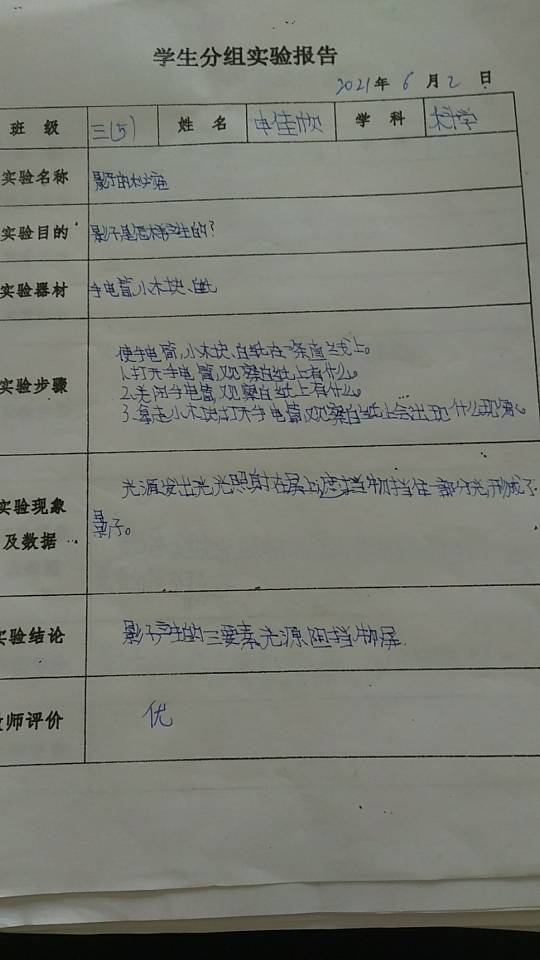 学生分组实验报告
2021年 6 月 2 日
班 级 三(5) 姓 名 申佳欣 学 科 科学
实验名称 影子的秘密
实验目的 影子是怎样产生的?
实验器材 手电筒,小木块、白纸
使手电筒,小木块、白纸在一条直线上。
1.打开手电筒,观察白纸上有什么。
实验步骤 2.关闭手电筒,观察白纸上有什么。
3.拿走小木块打开手电筒,观察白纸上会出现什么现象。
光源发出光光照射在屏上遮挡物挡住一部分光,形成了
实验现象 影子。
及数据
实验结论 影子产生的三要素光源阻挡物屏
教师评价 优